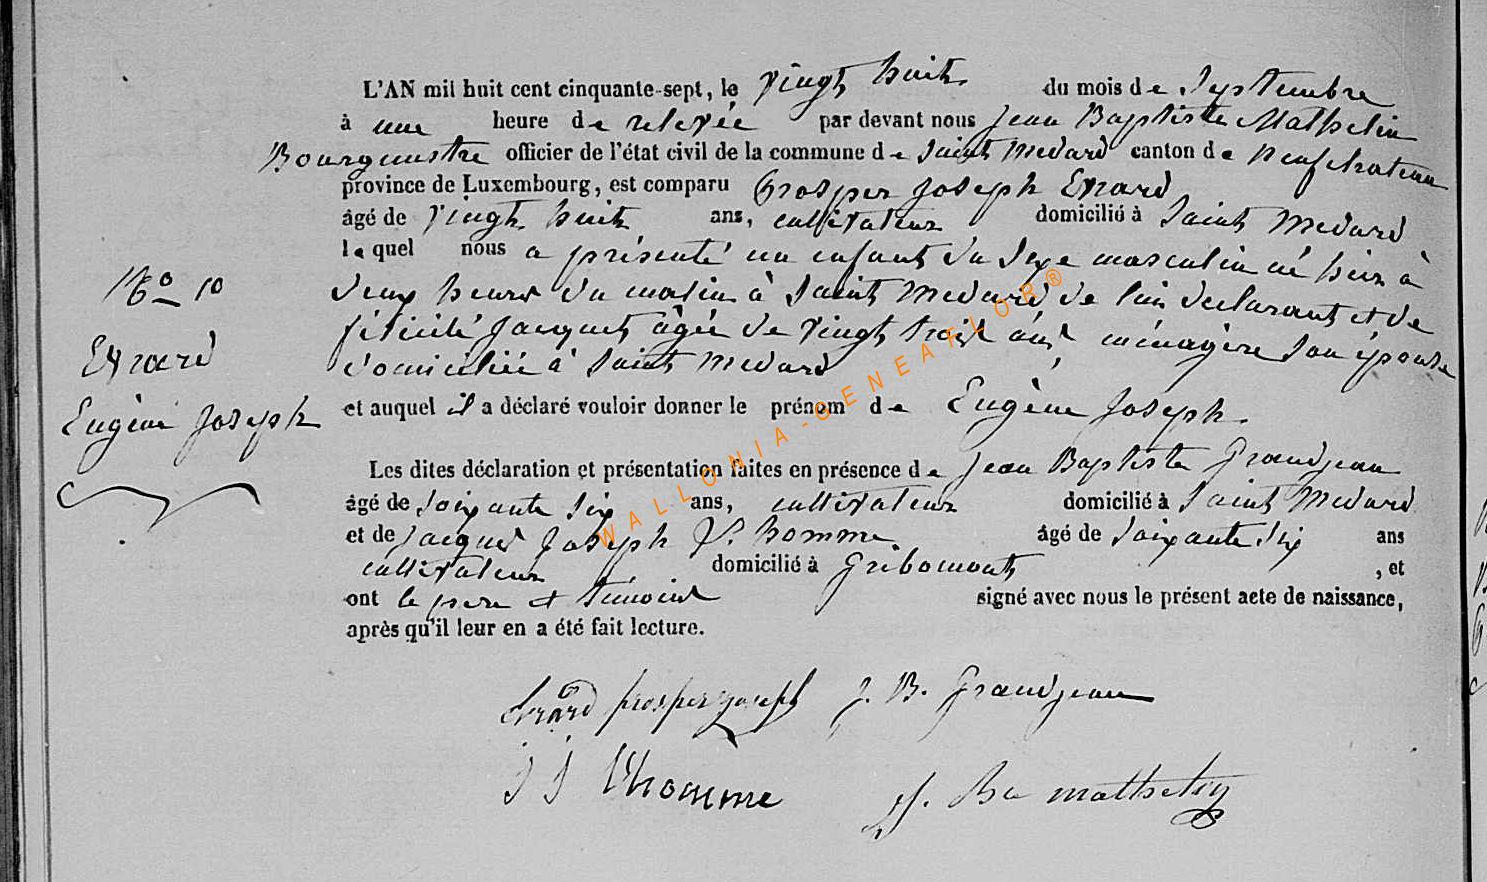 L'AN mil huit cent cinquante-sept, le vingt huit du mois de Septembre
à une heure de relevée par devant nous Jean Baptiste Mathelin
Bourgmestre officier de l'état civil de la commune de Saint Medard canton de Neufchateau
province de Luxembourg, est comparu Prosper Joseph Evrard
âgé de vingt huit ans, cultivateur domicilié à Saint Medard
lequel nous a présenté un enfant du sexe masculin né hier à
deux heures du matin à Saint Medard de lui declarant et de
félicité Jacquet âgée de vingt trois ans ménagère son épouse
domiciliée à Saint Medard
et auquel il a déclaré vouloir donner le prénom de Eugène Joseph.
Les dites déclaration et présentation faites en présence de Jean Baptiste Grandjean
âgé de soixante six ans, cultivateur domicilié à Saint Medard
et de Jacques Joseph L'homme âgé de soixante six ans
cultivateur domicilié à Gribomont , et
ont le père et témoins signé avec nous le présent acte de naissance,
après qu'il leur en a été fait lecture.
No 10
Evrard
Eugène Joseph
Evrard prosper joseph J. B. Grandjean
J J L'homme J. Bte mathelin
WALLONIA-GENEAFLOR®